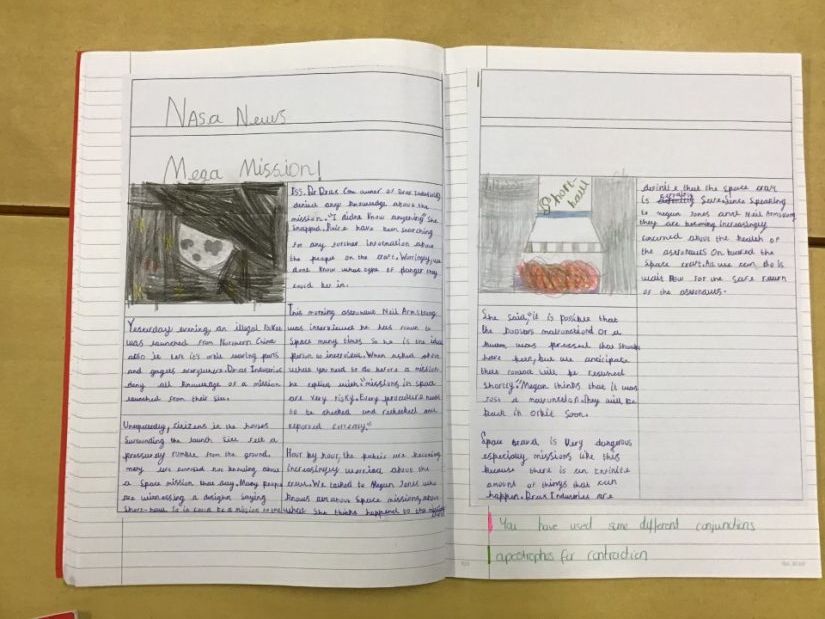 Nasa News
Mega Mission!
Yesterday evening, an illegal
was launched from Northern China
also it left it's orbit leaving parts
and gagets everywhere. Drax Industries
deny all knowledge of a mission
launched from their site.
Unexpectedly, citizens in the houses
Surrounding the launch site felt a
rumble from the ground.
many worried not knowing about
a space mission that day. Many people
are witnessing a saying
Short-haul. So it could be a mission to the
ISS. Dr Drax Com owner of Drax Industries
denied any knowledge about the
mission. "I didn't know anything" She
snapped. Police have been searching
for any further information about
the people on the craft. Worringly, we
dont know what type of danger they
could be in.
This morning astronaut Neil Armstrong
was interviewed he has flown to
Space many times. So he is the ideal
person to interview. When asked about
what you need to do before a mission
he replies with "missions in space
are very risky. Every procedure needs
to be checked and rechecked and
reported correctly."
Hour by hour, the public are becoming
increasingly worried about the
crew. We talked to Megan Jones who
knows all about Space missions about
what She thinks happened to the mission
Short-haul
She said, "it is possible that
the boosters malfunctiond or a
was pressed that should
have been, but we anticipate
that contact will be resumed
shortly." Megan thinks that it was
just a malfunction. They will be
back in orbit soon.
Space travel is very dangerous
especially missions like this
because there is an infinite
amount of things that can
happen. Drax Industries are
definite that the space craft
is certainly Safe. Since Speaking
to Megan Jones and Neil Armstrong
they are becoming increasingly
concerned about the health of
the astronauts on board the
Space craft. All we can do is
wait now for the safe return
of the astronauts.
You have used some different conjunctions
apostrophes for contraction